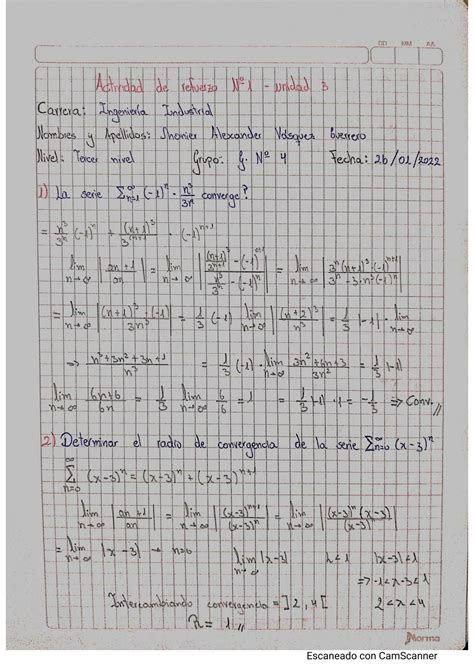 DD MM AA
Actividad de refuerzo Nº1 - unidad 3
Carrera: Ingeniería Industrial
Nombres y Apellidos: Jhonier Alexander Vásquez Guerrero
Nivel: Tercer nivel Grupo: G. Nº 4 Fecha: 26/01/2022
1) La serie Σ_{n=1}^{∞} (-1)^n · n^3/3^n converge?
= n^3/3^n (-1)^n + (n+1)^3/3^(n+1) · (-1)^{n+1}
lim n→∞ |an+1/an| = lim n→∞ |(n+1)^3/3^{n+1} - (-1)^{n+1} / n^3/3^n - (-1)^n| = lim n→∞ |3^n (n+1)^3 · (-1)^{n+1} / 3^n · 3 · n^3 (-1)^n|
= lim n→∞ |(n+1)^3 · (-1) / 3n^3| = 1/3 (-1) lim n→∞ |(n+2)^3 / n^3| = 1/3 |-1| · lim n→∞
→ n^3+3n^2+3n+1 / n^3 = 1/3 (-1) · lim n→∞ 3n^2+6n+3 / 3n^2 = 1/3 |-1|
lim n→∞ 6n+6 / 6n = lim n→∞ 6/6 = 1 = 1/3 |-1| · 1 = -1/3 ⇒ Conv.//
2) Determinar el radio de convergencia de la serie Σ_{n=0}^{∞} (x-3)^n
Σ_{n=0}^{∞} (x-3)^n = (x-3)^n + (x-3)^{n+1}
lim n→∞ |an+1/an| = lim n→∞ |(x-3)^{n+1} / (x-3)^n| = lim n→∞ |(x-3)^n (x-3) / (x-3)^n|
= lim n→∞ |x-3| → n=0 lim n→∞ |x-3| L<1 |x-3|<1
⇒ -1<x-3<1
Intercambiando convergencia = ]2,4[ 2<x<4
R = 1//
Norma
Escaneado con CamScanner